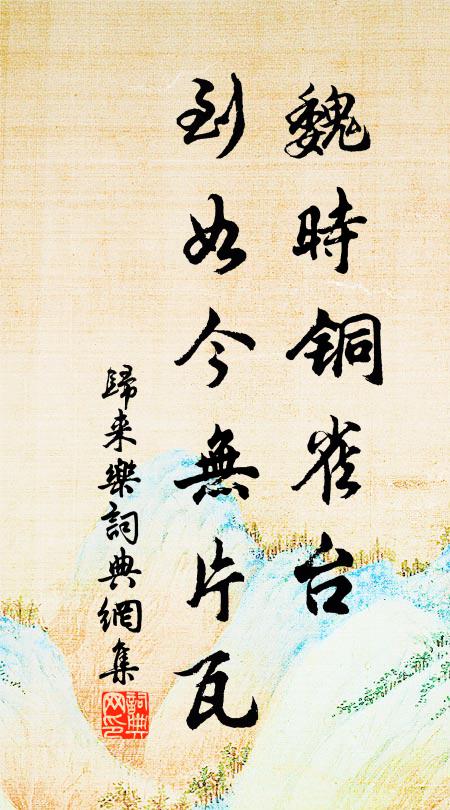 魏時铜雀台
到如今無片瓦
歸来樂詞典網集
詞典
网印